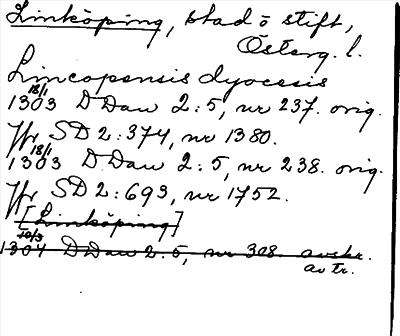 Linköping, stad o stift,
Österg. l.
Lincopensis dyocesis
18/1
1303 DDan 2:5, nr 237. orig.
Jfr SD 2:374, nr 1380.
18/1
1303 DDan 2:5, nr 238. orig.
Jfr SD 2:693, nr 1752.
[Linköping]
1304 DDan 2:5, nr 308. avskr.
av tr.